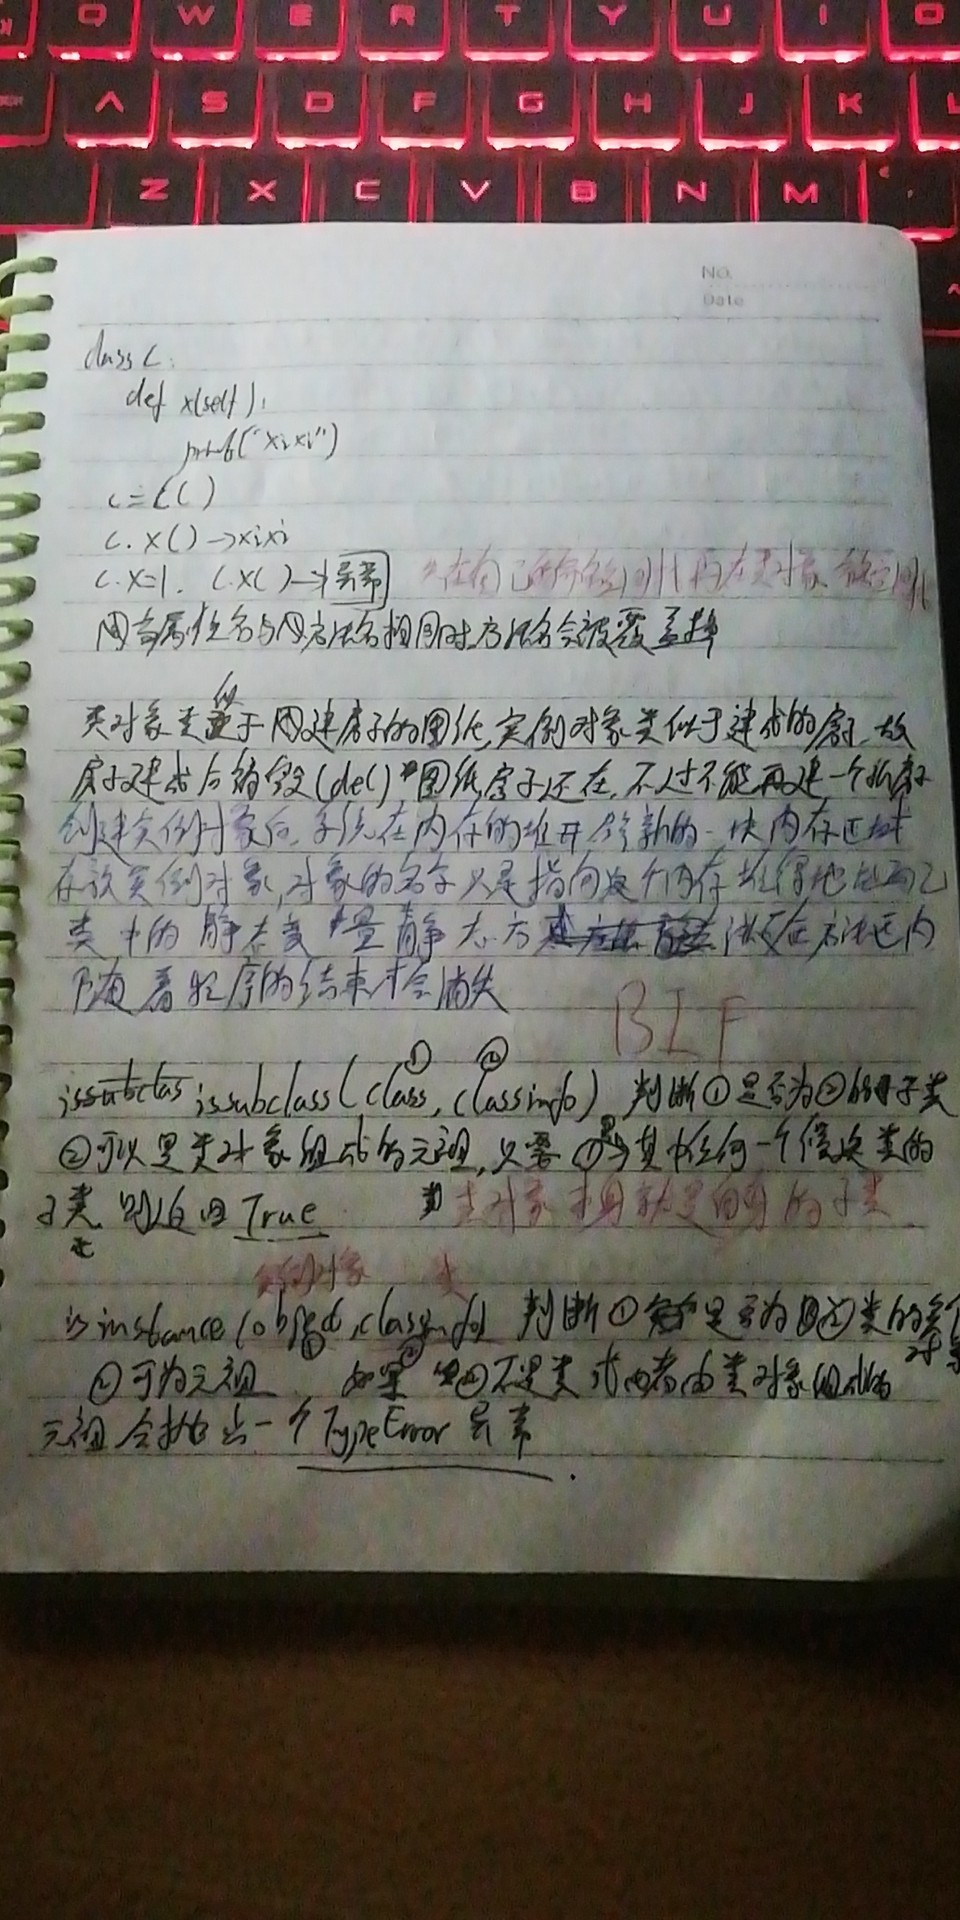 Q W E R T Y U I O
A S D F G H J K L
Z X C V B N M
NO.
Date
class C:
def x(self):
print("xixi")
c=C()
c.x()→xixi
c.x=1. c.x()→异常 先在自己的命名空间找 再在类对象命名空间找
属性名与方法名相同时方法名会被覆盖掉
类对象类似于用建房子的图纸,实例对象类似于建成的房,故
房子建成后销毁(del)图纸房子还在,不过不能再建一个新房子
创建实例对象后,系统在内存的堆开辟新的一块内存区域
存放实例对象,对象的名字只是指向这个内存堆得地址而已
类中的静态变量静态方法 在方法区内
随着程序的结束才会消失
BIF
issubclass issubclass(class, classinfo) 判断①是否为②的子类
① ②
②可以是类对象组成的元祖,只要①与其中任何一个候选类的
子类 则返回True 类对象本身就是自身的子类
实例对象 类
isinstance(object, classinfo) 判断①是否为②类的实例对象
① ②
②可为元祖 如果②不是类或者由类对象组成的
元祖会抛出一个TypeError异常.